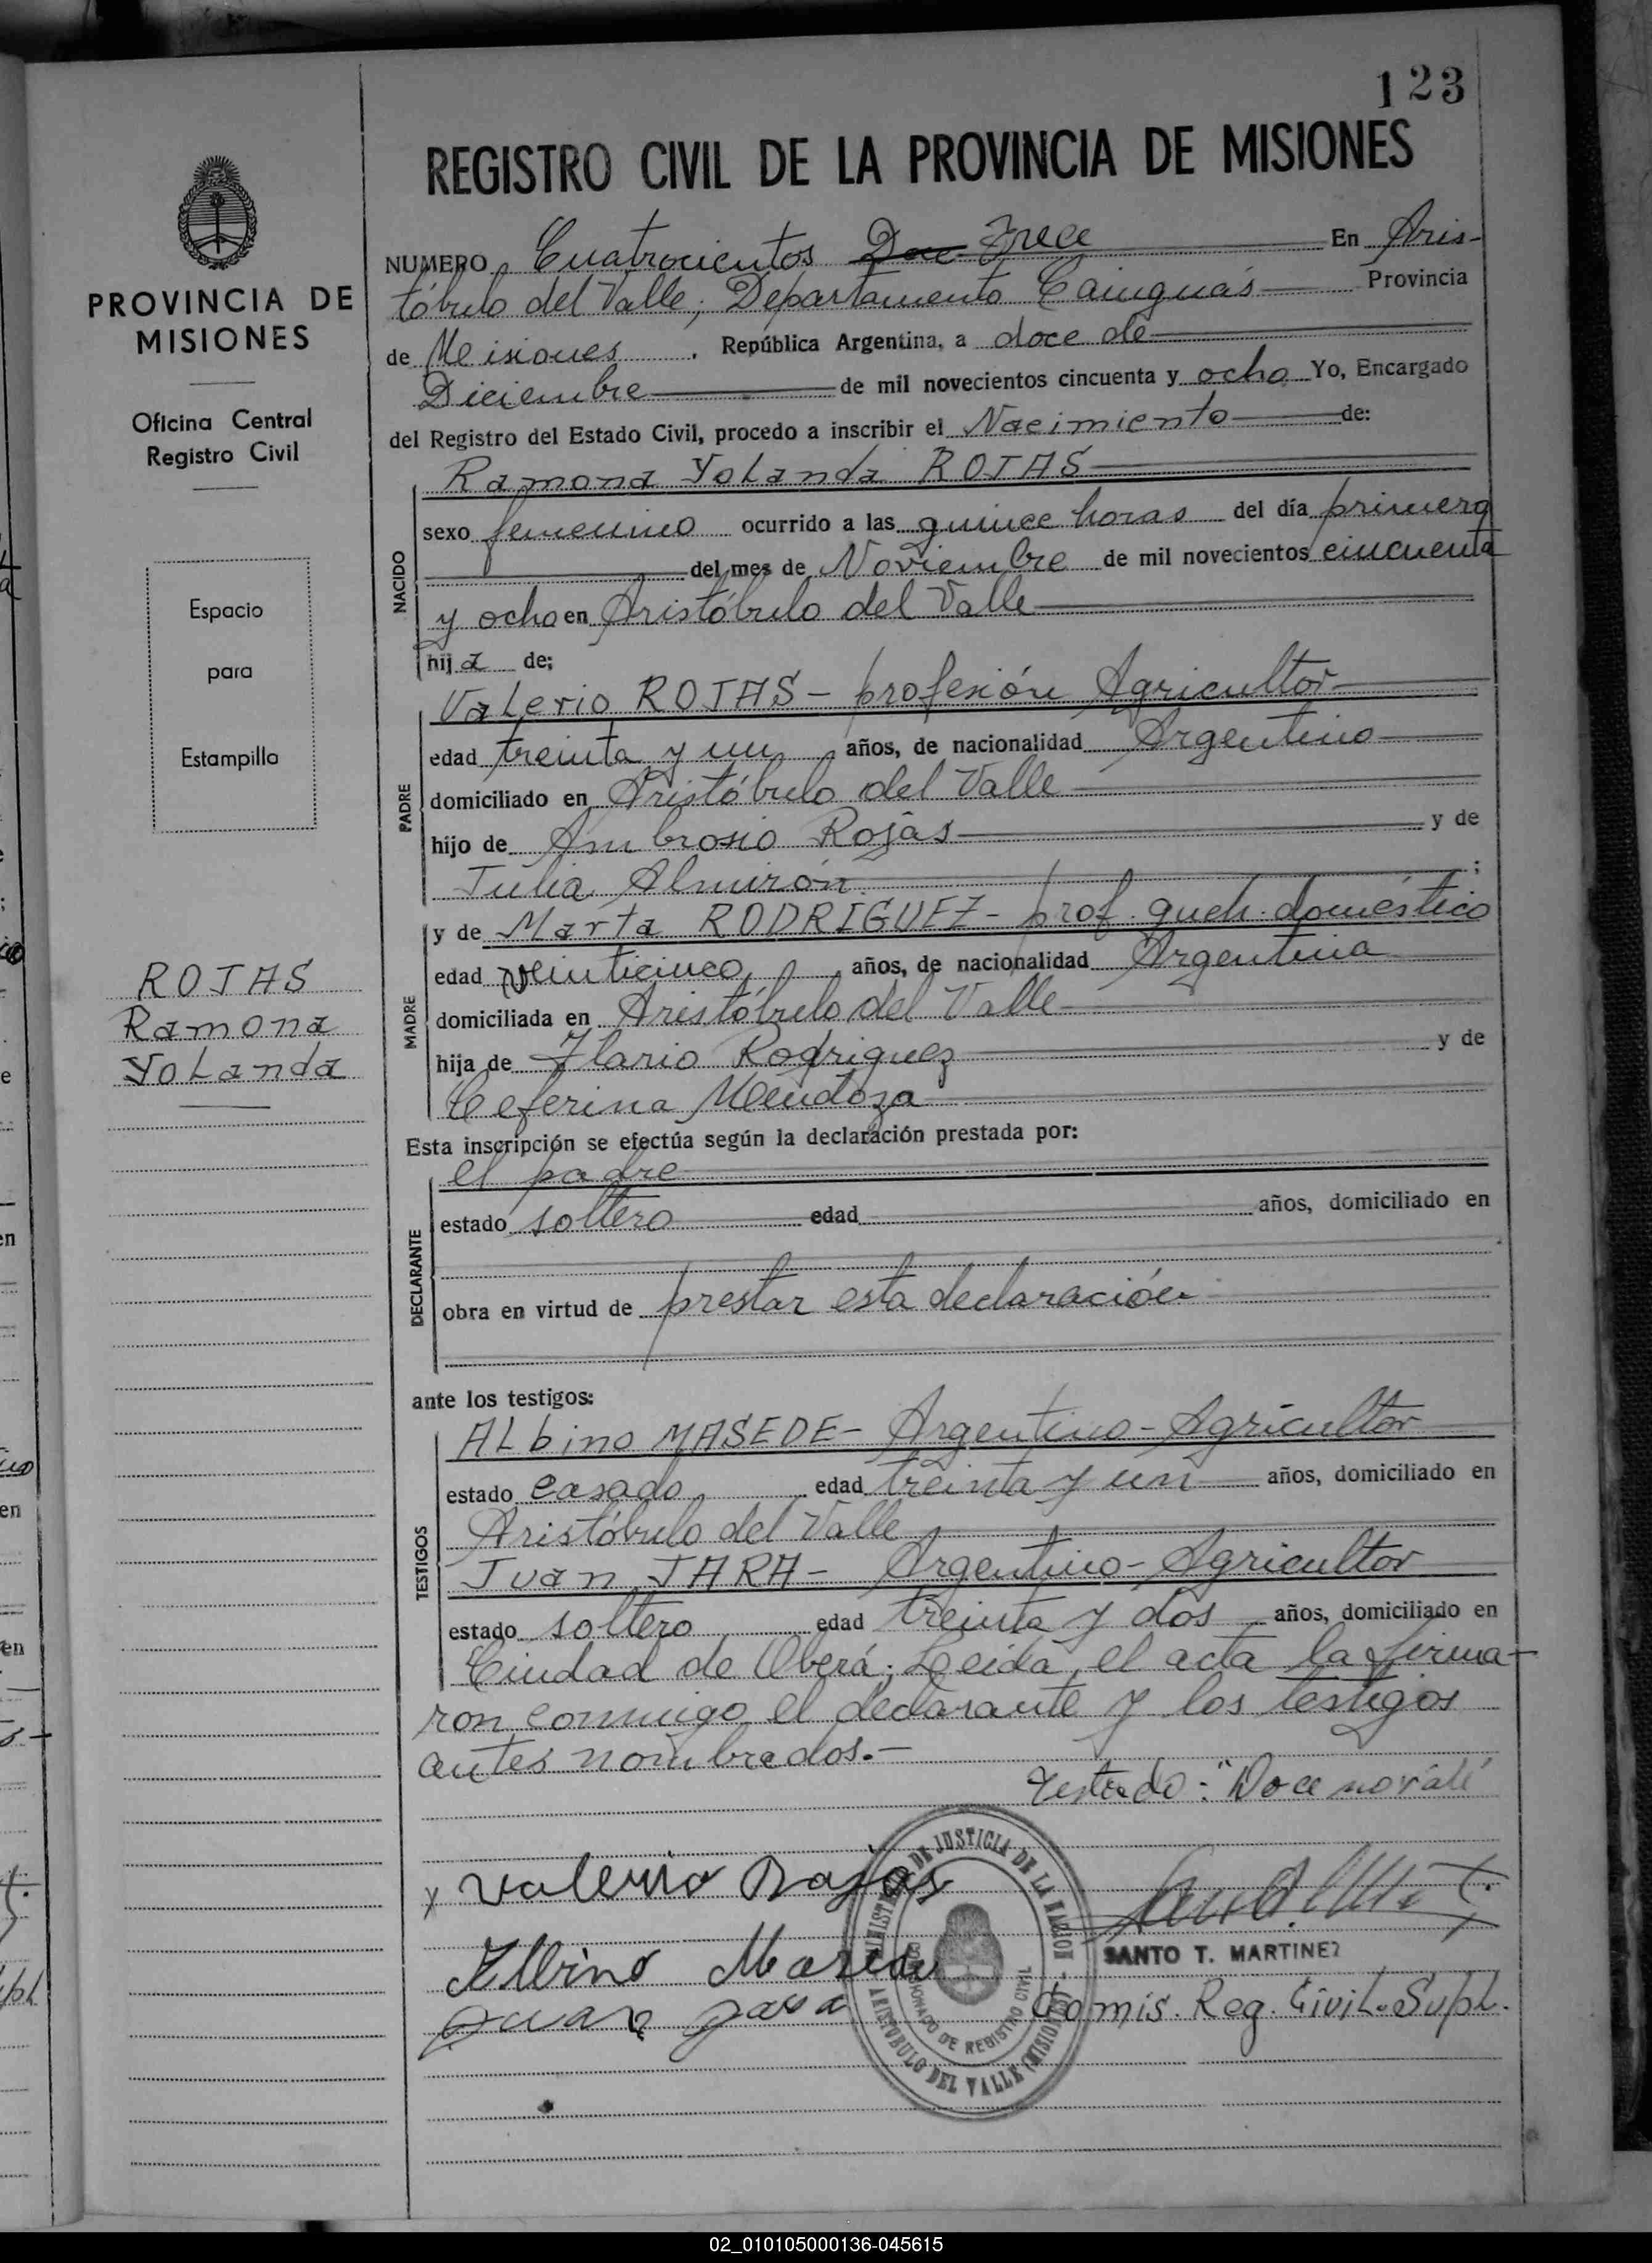 123
REGISTRO CIVIL DE LA PROVINCIA DE MISIONES
NUMERO Cuatrocientos Doce Trece En Aris-
tóbulo del Valle; Departamento Cainguás Provincia
de Misiones. República Argentina, a doce de
Diciembre de mil novecientos cincuenta y ocho Yo, Encargado
del Registro del Estado Civil, procedo a inscribir el Nacimiento de:
Ramona Yolanda ROJAS
NACIDO
sexo femenino ocurrido a las quince horas del día primero
del mes de Noviembre de mil novecientos cincuenta
y ocho en Aristóbulo del Valle
hija de;
PADRE
Valerio ROJAS - profesión Agricultor
edad treinta y un años, de nacionalidad Argentino
domiciliado en Aristóbulo del Valle
hijo de Ambrosio Rojas y de
Julia Almirón ;
MADRE
y de Marta RODRIGUEZ - prof. queh. doméstico
edad veinticinco años, de nacionalidad Argentina
domiciliada en Aristóbulo del Valle
hija de Ilario Rodriguez y de
Ceferina Mendoza
Esta inscripción se efectúa según la declaración prestada por:
DECLARANTE
el padre
estado soltero edad años, domiciliado en
obra en virtud de prestar esta declaración
ante los testigos:
TESTIGOS
Albino MASEDE - Argentino - Agricultor
estado casado edad treinta y un años, domiciliado en
Aristóbulo del Valle
Juan JARA - Argentino - Agricultor
estado soltero edad treinta y dos años, domiciliado en
Ciudad de Oberá; Leída el acta la firma-
ron conmigo el declarante y los testigos
antes nombrados.-
Testado: "Doce no vale"
x Valerio Rojas
Albino Masede
Juan Jara
SANTO T. MARTINEZ
Comis. Reg. Civil. Supl.
MINISTERIO DE JUSTICIA DE LA NACION
COMISIONADO DE REGISTRO CIVIL
ARISTOBULO DEL VALLE (MISIONES)
PROVINCIA DE
MISIONES
Oficina Central
Registro Civil
Espacio
para
Estampilla
ROJAS
Ramona
Yolanda
02_010105000136-045615